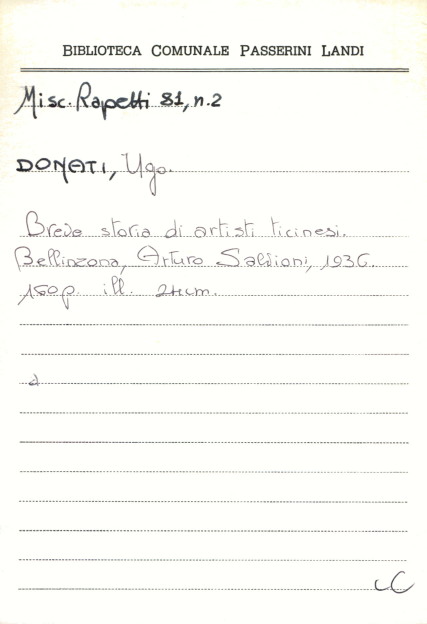 BIBLIOTECA COMUNALE PASSERINI LANDI
Misc. Rapetti 81, n. 2
DONATI, Ugo.
Breve storia di artisti ticinesi.
Bellinzona, Arturo Salvioni, 1936.
150 p. ill. 24 cm.
d